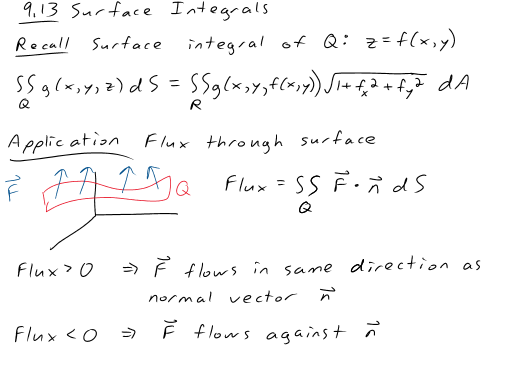 9.13 Surface Integrals
Recall Surface integral of Q: z=f(x,y)
∫∫_Q g(x,y,z) dS = ∫∫_R g(x,y,f(x,y)) √(1+f_x²+f_y²) dA
Application Flux through surface
F⃗ Q Flux = ∫∫_Q F⃗ · n⃗ dS
Flux > 0 ⇒ F⃗ flows in same direction as
normal vector n⃗
Flux < 0 ⇒ F⃗ flows against n⃗